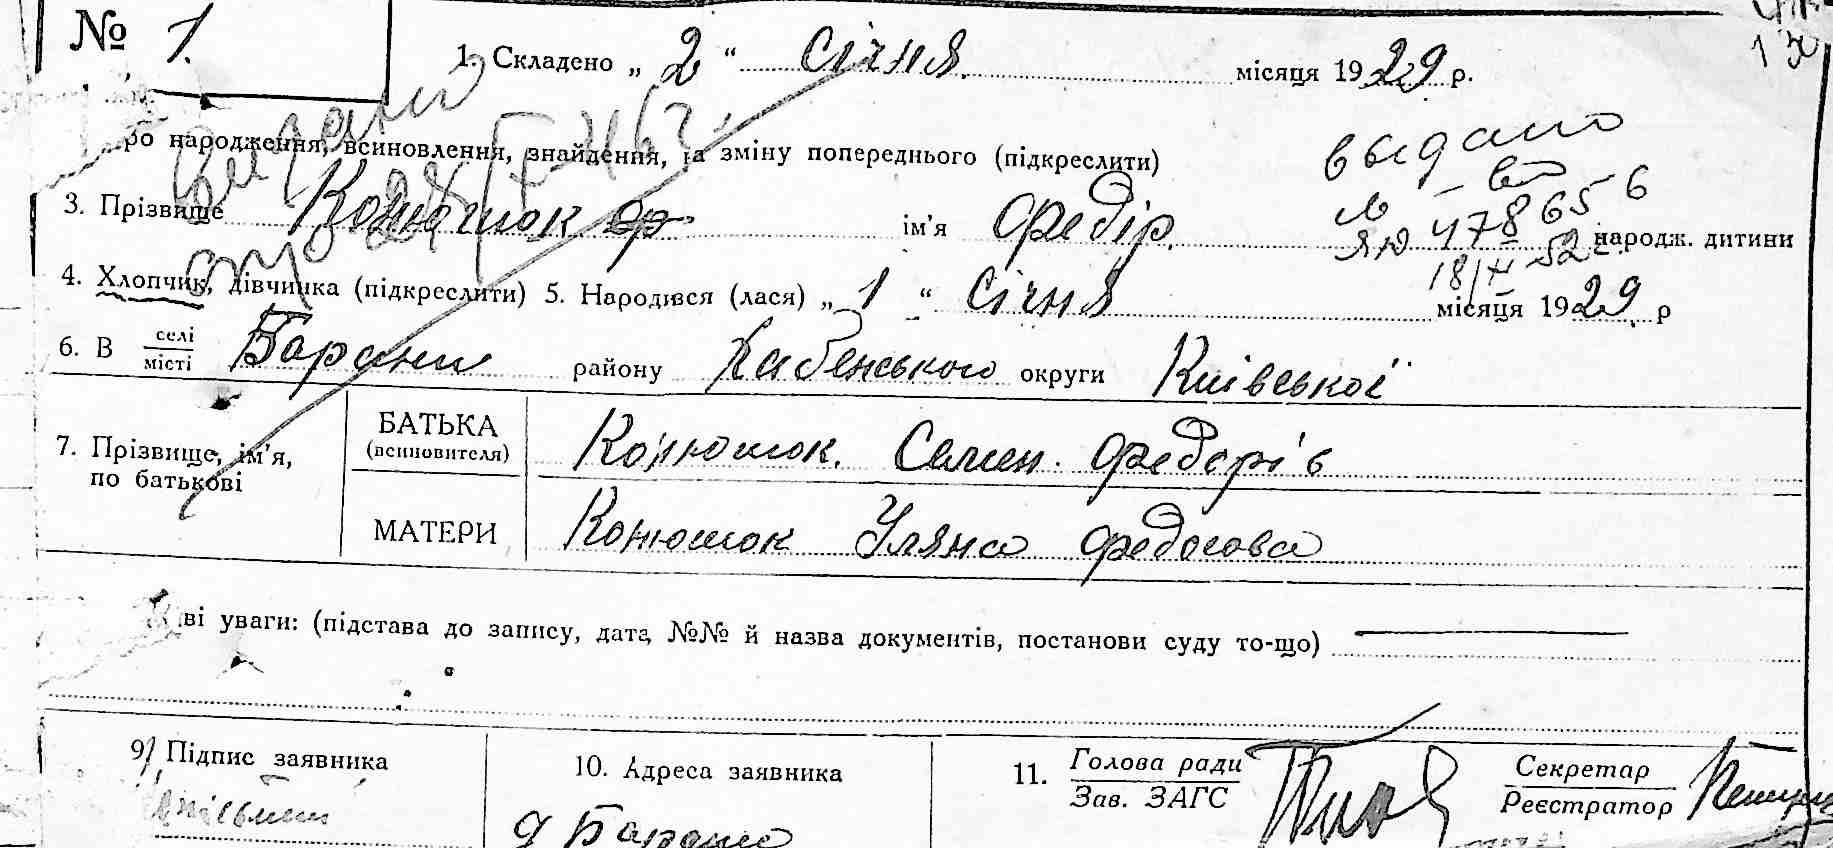 № 1.
1. Складено „ 2 “ січня місяця 1929 р.
ро народження, всиновлення, знайдення, та зміну попереднього (підкреслити)
видано
выдано
3. Прізвище Конюшок ім’я Федір. народж. дитини
ЯЮ 478656
4. Хлопчик, дівчинка (підкреслити) 5. Народився (лася) „ 1 “ січня місяця 1929 р
6. В селі Барани району Хабенського округи Київської
місті
7. Прізвище, ім’я, по батькові
БАТЬКА (всиновителя) Конюшок. Семен. Федорів
МАТЕРИ Конюшок Уляна Федосова
ві уваги: (підстава до запису, дата, №№ й назва документів, постанови суду то-що)
9. Підпис заявника
10. Адреса заявника
11. Голова ради
Зав. ЗАГС
Секретар
Реєстратор